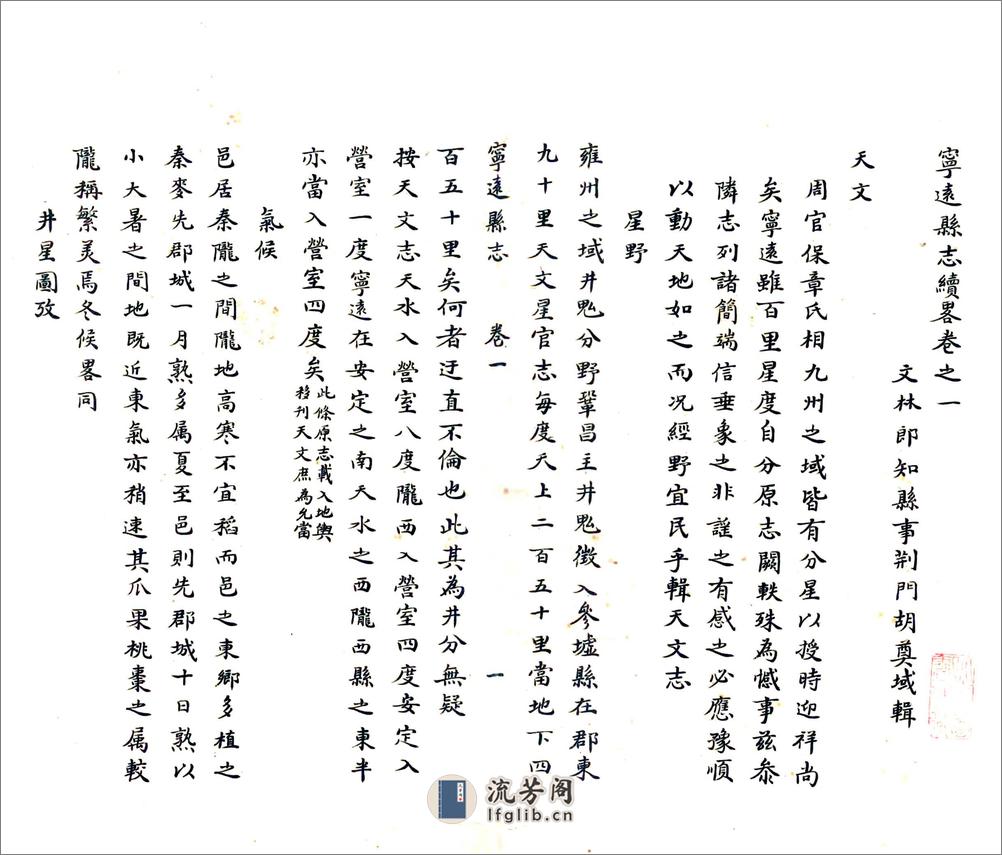 寧遠縣志續畧卷之一
文林郎知縣事荆門胡奠域輯
天文
周官保章氏相九州之域皆有分星以授時迎祥尚
矣寧遠雖百里星度自分原志闕軼殊為憾事兹叅
隣志列諸簡端信垂象之非誣之有感之必應豫順
以動天地如之而况經野宜民乎輯天文志
星野
雍州之域井鬼分野鞏昌主井鬼徴入參墟縣在郡東
九十里天文星官志每度天上二百五十里當地下四
寧遠縣志 卷一 一
百五十里矣何者迂直不倫也此其為井分無疑
按天文志天水入營室八度隴西入營室四度安定入
營室一度寧遠在安定之南天水之西隴西縣之東半
亦當入營室四度矣此條原志載入地輿
移刋天文庶為允當
氣候
邑居秦隴之間隴地高寒不宜稻而邑之東鄉多植之
秦麥先郡城一月熟多属夏至邑則先郡城十日熟以
小大暑之間地既近東氣亦稍速其瓜果桃棗之属較
隴稱繁美焉冬候畧同
井星圖攷
流芳阁
lfglib.cn